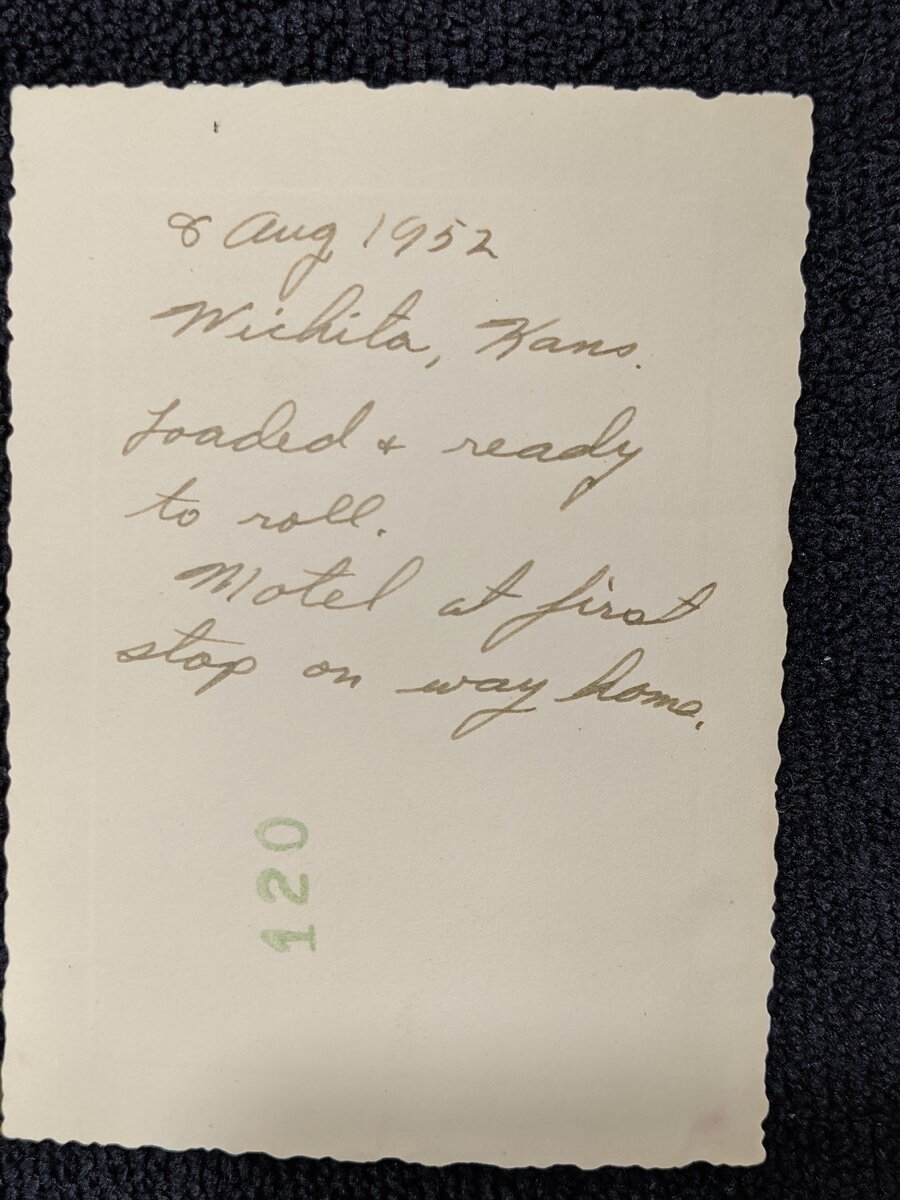 8 Aug 1952
Wichita, Kans.
Loaded & ready
to roll.
Motel at first
stop on way home.
120